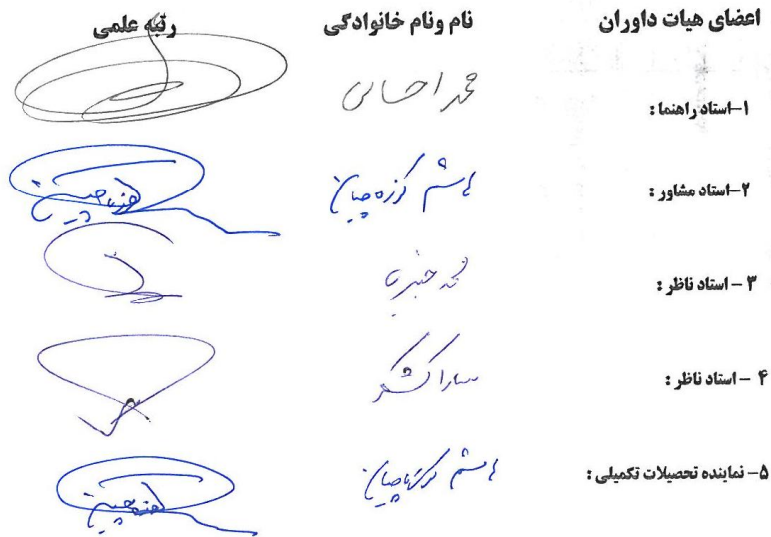 اعضای هیات داوران نام ونام خانوادگی رتبه علمی
۱-استاد راهنما : محمد احسانی
۲-استاد مشاور : هاشم کوزه چیان
۳ - استاد ناظر : محمد خبیری
۴ - استاد ناظر : سارا کشکر
۵- نماینده تحصیلات تکمیلی : هاشم کوزه چیان